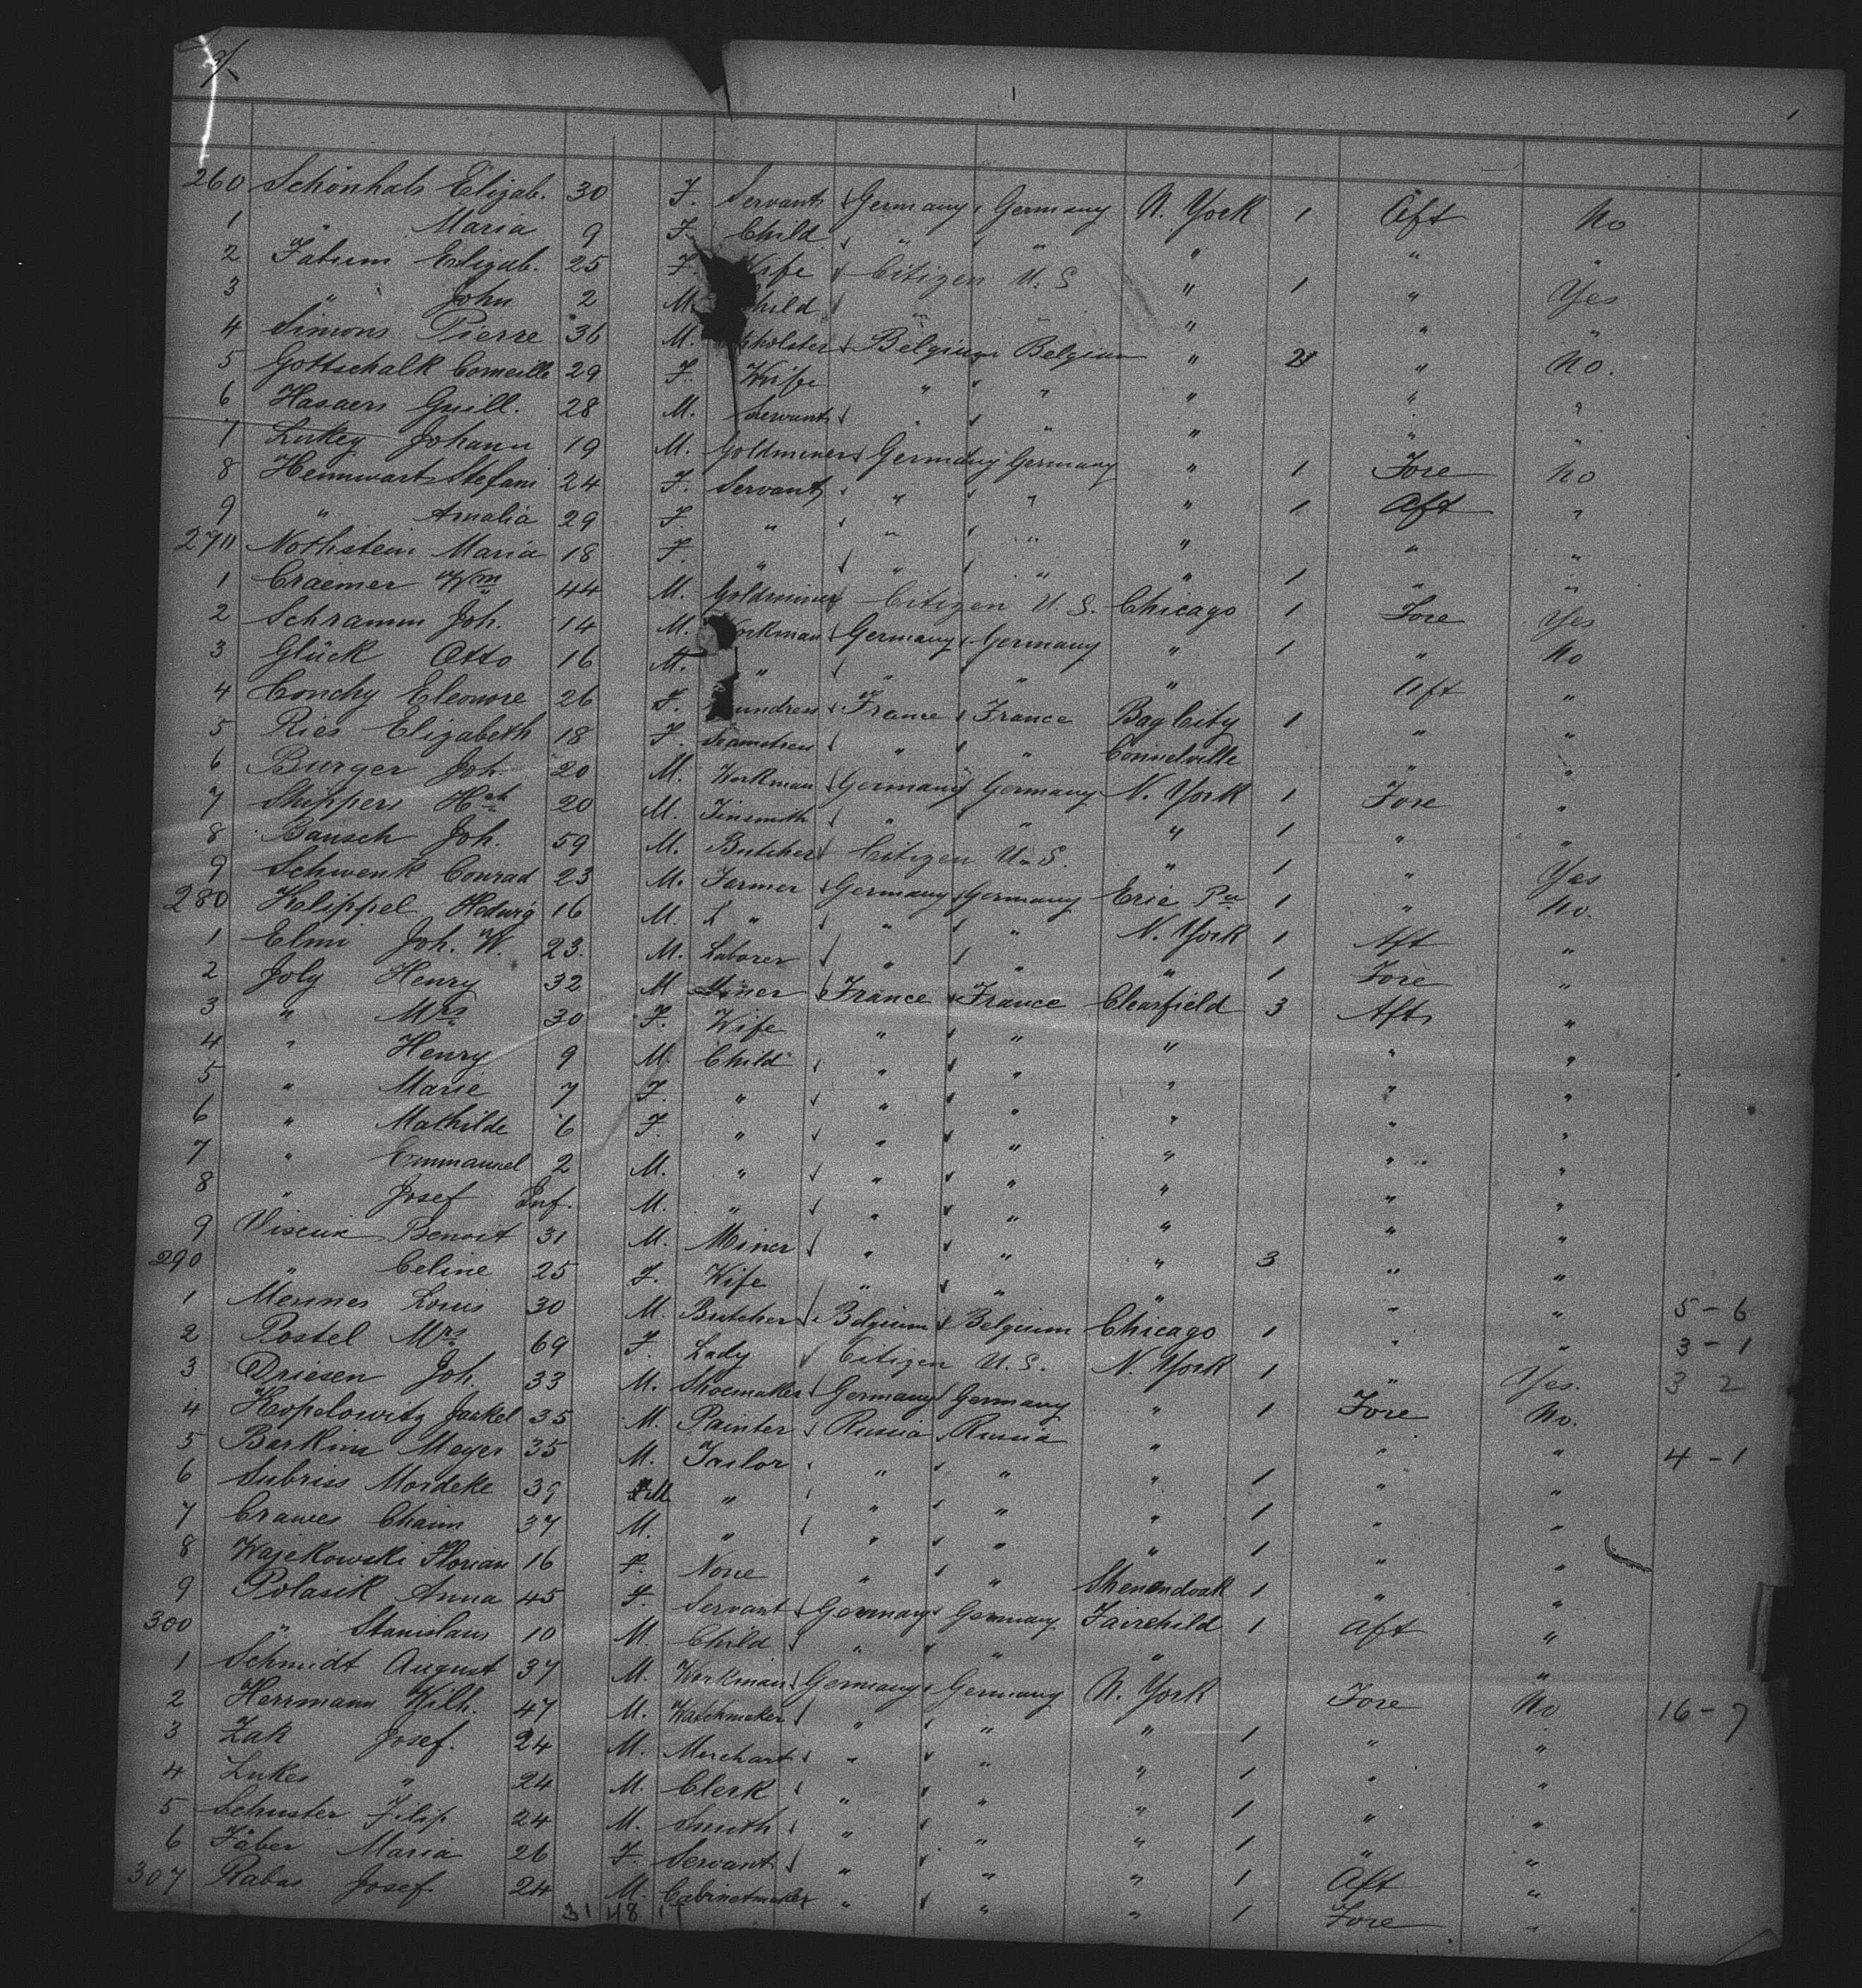 260 Schönhals Elizab. 30 F. Servant Germany Germany N. York 1 Aft No
1 " Maria 9 F. Child " " " " "
2 Fatum Elizab. 25 F. Wife Citizen U. S " 1 " Yes
3 " John 2 M. Child " " " " "
4 Simons Pierre 36 M. Upholster Belgium Belgium " 2 " No.
5 Gottschalk Corneille 29 F. Wife " " " " "
6 Hasaers Guill. 28 M. Servant " " " " "
7 Lukey Johann 19 M. Goldminer Germany Germany " 1 Fore No
8 Hennwart Stefani 24 F. Servant " " " 1 Aft "
9 " Amalia 29 F. " " " " " "
270 Nothstein Maria 18 F. " " " " 1 " "
1 Craemer Wm 44 M. Goldminer Citizen U. S. Chicago 1 Fore Yes
2 Schramm Joh. 14 M. Workman Germany Germany " 1 " No
3 Glück Otto 16 M. " " " " Aft "
4 Conchy Eleonore 26 F. Laundress France France Bay City 1 " "
5 Ries Elizabeth 18 F. Seamstress " " Connelville " "
6 Burger Joh. 20 M. Workman Germany Germany N. York 1 Fore "
7 Shippers Hch 20 M. Tinsmith " " " 1 " "
8 Bausch Joh. 59 M. Butcher Citizen U. S. " 1 " Yes
9 Schwenk Conrad 23 M. Farmer Germany Germany Erie Pa 1 " No.
280 Klippel Hedwig 16 M. " " " N. York 1 Aft "
1 Elmi Joh. W. 23. M. Laborer " " " 1 Fore "
2 Joly Henry 32 M Miner France France Clearfield 3 Aft "
3 " Mrs 30 F. Wife " " " " "
4 " Henry 9 M. Child " " " " "
5 " Marie 7 F. " " " " " "
6 " Mathilde 6 F. " " " " " "
7 " Emmanuel 2 M. " " " " " "
8 " Josef Inf. M. " " " " " "
9 Benoit 31 M. Miner " " " 3 " "
290 " Celine 25 F. Wife " " " " " 5 - 6
1 Mennes Louis 30 M. Butcher Belgium Belgium Chicago 1 " " 3 - 1
2 Postel Mrs 69 F. Lady Citizen U. S. N. York 1 " Yes. 3 2
3 Driesen Joh. 33 M. Shoemaker Germany Germany " 1 Fore No.
4 Hopelowitz Jankel 35 M. Painter Russia Russia " " " 4 - 1
5 Barkim Meyer 35 M. Tailor " " " 1 " "
6 Subriss Mordeke 39 M " " " " 1 " "
7 Crawes Chaim 37 M. " " " " 1 " "
8 Wajekowski Florian 16 F. None " " Shenendoah 1 " "
9 Polasik Anna 45 F. Servant Germany Germany Fairchild 1 Aft "
300 " Stanislaus 10 M. Child " " " "
1 Schmidt August 37 M. Workman Germany Germany N. York Fore No 16 - 7
2 Herrmann Wilh. 47 M. Watchmaker " " " 1 " "
3 Zak Josef. 24 M. Merchant " " " 1 " "
4 Lukes " 24 M. Clerk " " " 1 " "
5 Schuster Filip 24 M. Smith " " " 1 " "
6 Fäber Maria 26 F. Servant " " " 1 Aft "
307 Rabas Josef 24 M. Cabinetmaker " " " 1 Fore "
31 48 11